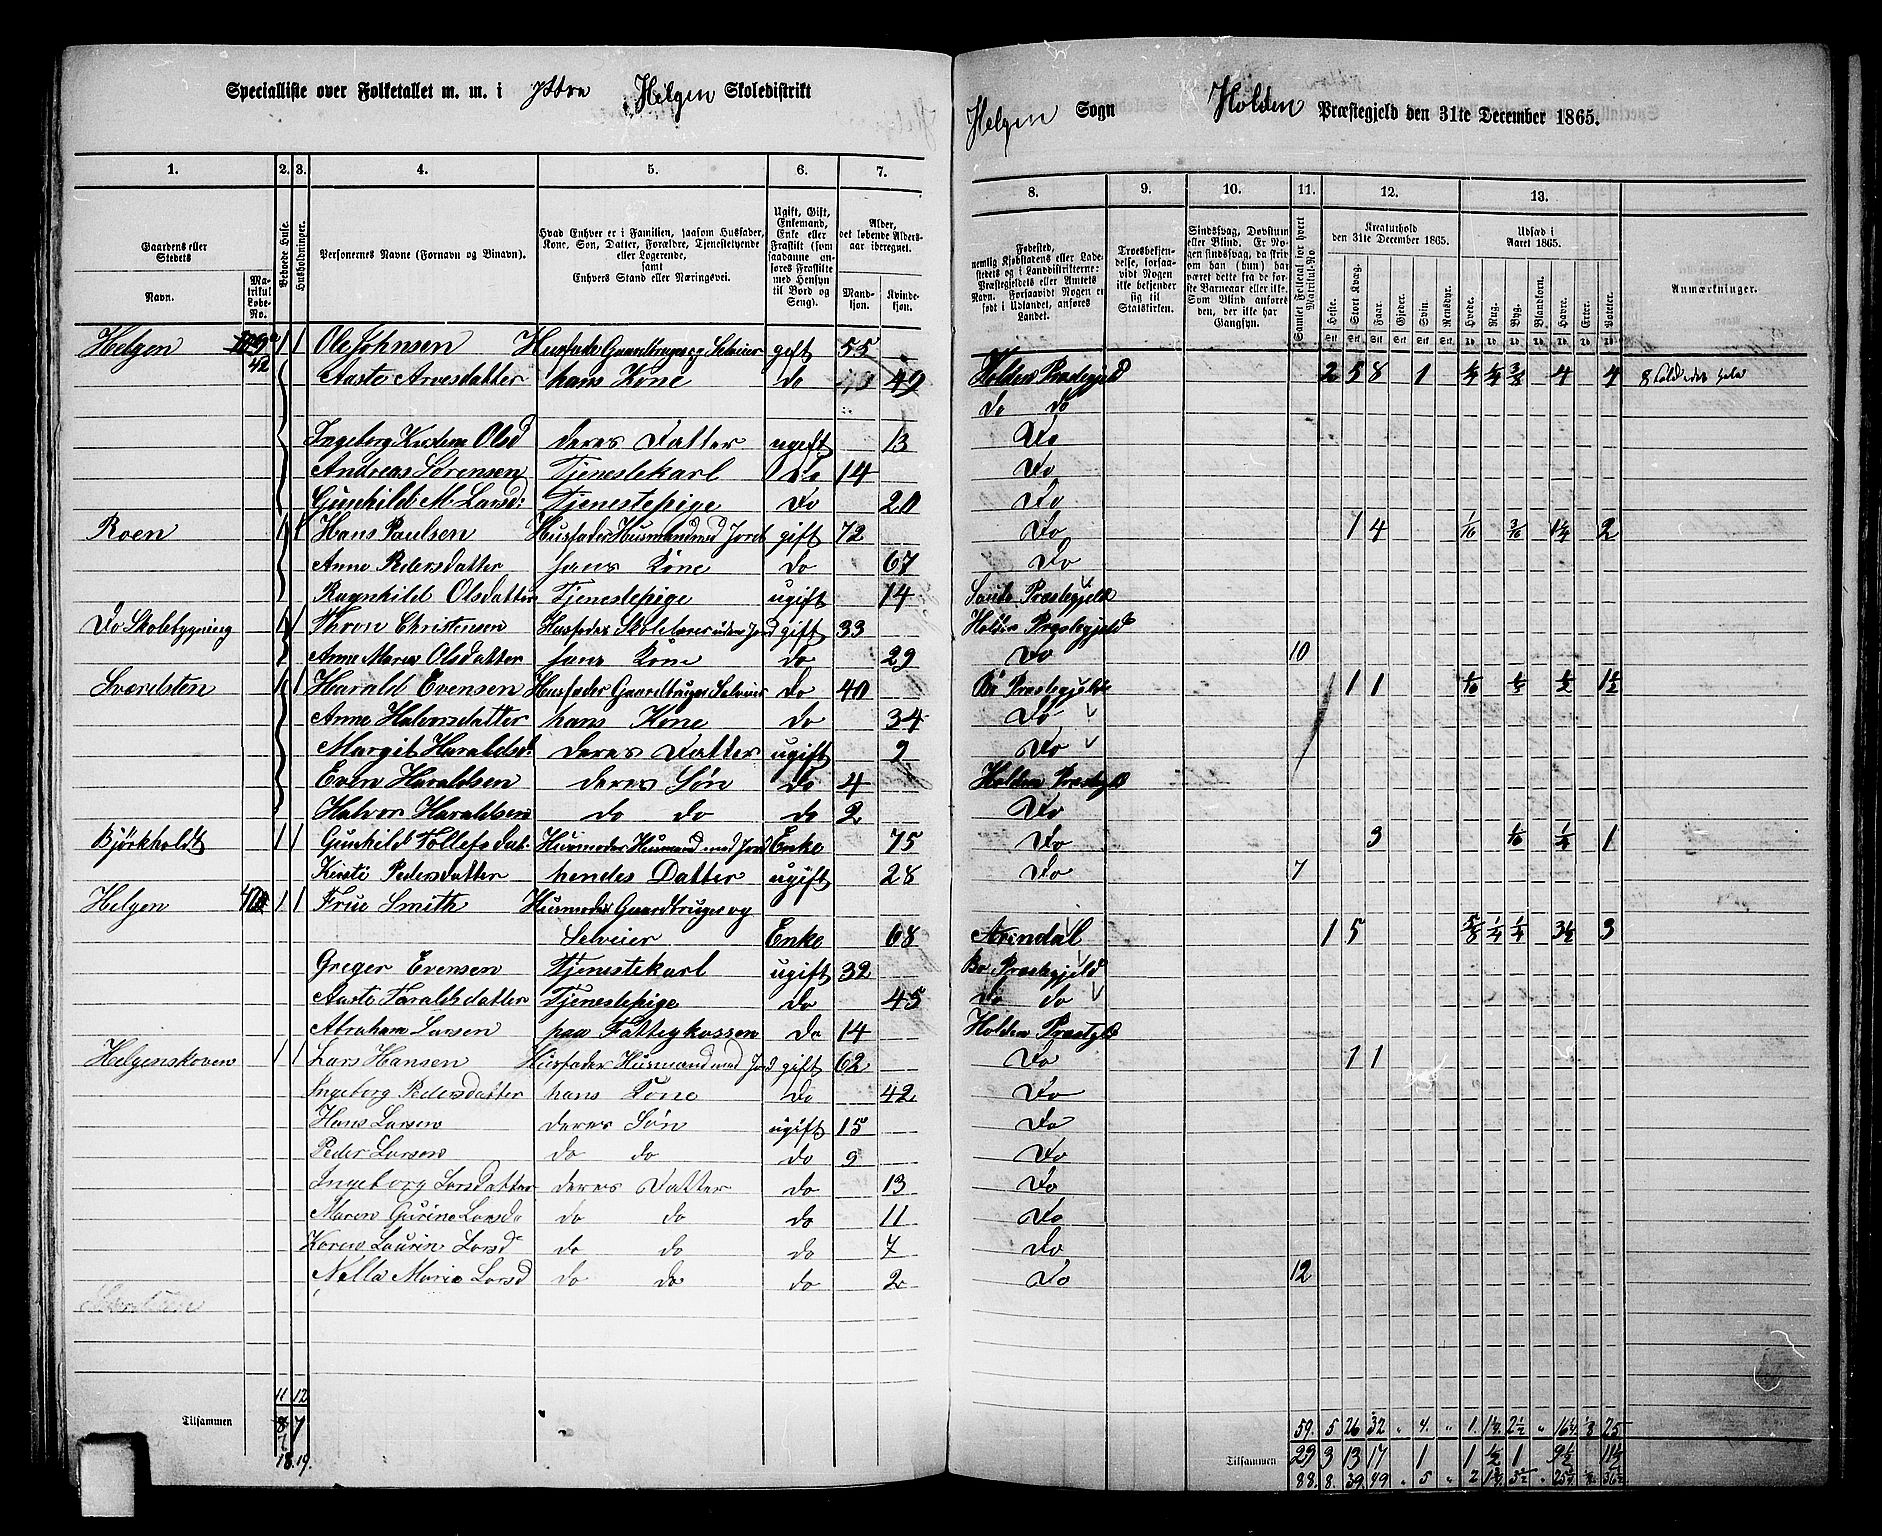 Specialliste over Folketallet m. m. i Ydtre Helgen Skoledistrikt
Helgen Sogn Holden Præstegjeld den 31te December 1865.
1. 2. 3. 4. 5. 6. 7.
8. 9. 10. 11. 12. 13.
Gaardens eller Stedets
Navn.
Matrikul Løbe-No.
Beboede Huse.
Huusholdninger.
Personernes Navne (Fornavn og Binavn).
Hvad Enhver er i Familien, saasom Husfader, Kone, Søn, Datter, Forældre, Tjenestetyende eller Logerende,
samt
Enhvers Stand eller Næringsvei.
Ugift, Gift, Enkemand, Enke eller Fraskilt (som saadanne anføres Fraskilte med Hensyn til Bord og Seng).
Alder, det løbende Aldersaar iberegnet.
Mandkjøn. Kvindekjøn.
Fødested,
nemlig Kjøbstadens eller Ladestedets og i Landdistrikterne: Præstegjeldets eller Amtets Navn. Forsaavidt Nogen er født i Udlandet, anføres Landet.
Troesbekjendelse, forsaavidt Nogen ikke bekjender sig til Statskirken.
Sindssvag, Døvstum eller Blind. Er Nogen sindssvag, da skrives om han (hun) har været dette fra de første Barneaar eller ikke. Som Blind anføres den, der ikke har Gangsyn.
Samlet Folketal for hvert Matrikul-No
Kreaturhold
den 31te December 1865.
Heste. Stort Kvæg. Faar. Gjeder. Svin. Rensdyr.
Udsæd i
Aaret 1865.
Hvede. Rug. Byg. Blandkorn. Havre. Erter. Poteter.
Anmærkninger.
Helgen 42 1 1 Ole Johnsen Husfader Gaardbruger og Selveier gift 55 Holden Præstegjeld 2 5 8 1 1/4 1/4 3/8 4 4
Aaste Arvesdatter hans Kone do 49 Do do
Ingeborg Kirstine Olsd deres Datter ugift 13 Do
Andreas Sørensen Tjenestekarl Do 14 Do
Gunhild M. Larsd: Tjenestepige Do 20 Do
Roen 1 1 Hans Paulsen Husfader Husmand med Jord gift 72 Do 1 4 1/16 3/16 1 1/4 2
Anne Pedersdatter hans Kone do 67 Do
Ragnhild Olsdatter Tjenestepige ugift 14 Præstegjeld
Do Skolebygning 1 1 Thron Christensen Husfader Skolelærer uden Jord gift 33 Holden Præstegjeld
Anne Maria Olsdatter hans Kone do 29 Do 10
Sværdsten 1 1 Harald Evensen Husfader Gaardbruger Selveier Do 40 Bø Præstegjeld 1 1 1/16 1 1/2
Anne Halvorsdatter hans Kone do 34 Do
Margit Haraldsd. deres Datter ugift 9 Do
Even Haraldsen deres Søn do 4 Holden Præstegd
Halvor Haraldsen do do do 2 Do
Bjørkholdt 1 1 Gunhild Tollefsdat. Husmoder Husmand med Jord Enke 75 Do 3 1/16 1
Kirsti Pedersdatter hendes Datter ugift 28 Do 7
Helgen 1 1 Frue Smith Husmoder Gaardbruger og
Selveier Enke 68 Arendal 1 5 5/8 1/4 1/4 3 1/2 3
Greger Evensen Tjenestekarl ugift 32 Bø Præstegjeld
Aaste Haraldsdatter Tjenestepige Do 45 Do do
Abraham Larsen paa Fattigkassen Do 14 Holden Præstgjld
Helgenskoven 1 1 Lars Hansen Husfader Husmand med Jord gift 62 Do 1 1
Ingeborg Pedersdatter hans Kone Do 42 Do
Hans Larsen deres Søn ugift 15 Do
Peder Larsen do do do 9 Do
Ingeborg Larsdatter deres Datter do 13 Do
Maren Gurine Larsda do do do 11 Do
Karen Laurin Larsd do do do 7 Do
Nella Maria Larsd do do do 2 Do 12
11 12
Tilsammen 8 7
7
18. 19.
59. 5 26 32 „ 4. „ 1. 2 1/2 „ 25
Tilsammen 29 3 13 17 1 1 1/2 1 9 1/2
88. 8. 39. 49 „ 5 „ 2